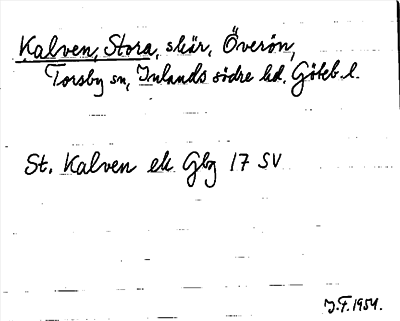 Kalven, Stora, skär, Överön,
Torsby sn, Inlands södre hd, Göteb. l.
St. Kalven ek Gbg 17 SV
J.F. 1954.